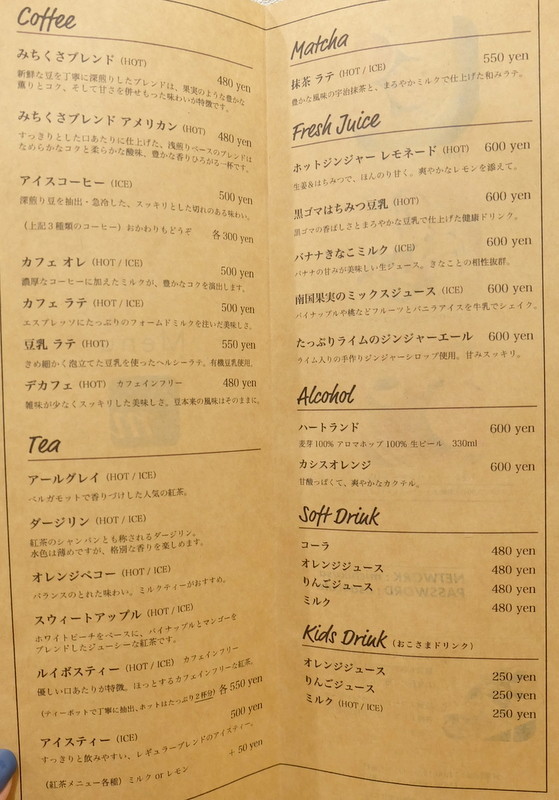 Coffee
みちくさブレンド (HOT)
480 yen
新鮮な豆を丁寧に深煎りしたブレンドは、果実のような豊かな
薫りとコク、そして甘さを併せもった味わいが特徴です。
みちくさブレンド アメリカン (HOT) 480 yen
すっきりとした口あたりに仕上げた、浅煎りベースのブレンドは
なめらかなコクと柔らかな酸味、豊かな香りひろがる一杯です。
アイスコーヒー (ICE)
500 yen
深煎り豆を抽出・急冷した、スッキリとした切れのある味わい。
(上記3種類のコーヒー) おかわりもどうぞ 各300 yen
カフェ オレ (HOT / ICE)
500 yen
濃厚なコーヒーに加えたミルクが、豊かなコクを演出します。
カフェ ラテ (HOT / ICE)
500 yen
エスプレッソにたっぷりのフォームドミルクを注いだ美味しさ。
豆乳 ラテ (HOT)
550 yen
きめ細かく泡立てた豆乳を使ったヘルシーラテ、有機豆乳使用。
デカフェ (HOT) カフェインフリー 480 yen
雑味が少なくスッキリした美味しさ。豆本来の風味はそのままに。
Tea
アールグレイ (HOT / ICE)
ベルガモットで香りづけした人気の紅茶。
ダージリン (HOT / ICE)
紅茶のシャンパンとも称されるダージリン。
水色は薄めですが、格別な香りを楽しめます。
オレンジペコー (HOT / ICE)
バランスのとれた味わい。ミルクティーがおすすめ。
スウィートアップル (HOT / ICE)
ホワイトピーチをベースに、パイナップルとマンゴーを
ブレンドしたジューシーな紅茶です。
ルイボスティー (HOT / ICE) カフェインフリー
優しい口あたりが特徴。ほっとするカフェインフリーな紅茶。
(ティーポットで丁寧に抽出、ホットはたっぷり2杯分) 各550 yen
500 yen
アイスティー (ICE)
すっきりと飲みやすい、レギュラーブレンドのアイスティー。
+ 50 yen
(紅茶メニュー各種) ミルク or レモン
Matcha
抹茶 ラテ (HOT / ICE)
550 yen
豊かな風味の宇治抹茶と、まろやかミルクで仕上げた和みラテ。
Fresh Juice
ホットジンジャー レモネード (HOT) 600 yen
生姜&はちみつで、ほんのり甘く。爽やかなレモンを添えて。
黒ゴマはちみつ豆乳 (HOT)
600 yen
黒ゴマの香ばしさとまろやかな豆乳で仕上げた健康ドリンク。
バナナきなこミルク (ICE)
600 yen
バナナの甘みが美味しい生ジュース。きなことの相性抜群。
南国果実のミックスジュース (ICE) 600 yen
パイナップルや桃などフルーツとバニラアイスを牛乳でシェイク。
たっぷりライムのジンジャーエール 600 yen
ライム入りの手作りジンジャーシロップ使用。甘みスッキリ。
Alcohol
ハートランド
600 yen
麦芽100% アロマホップ100% 生ビール 330ml
カシスオレンジ
600 yen
甘酸っぱくて、爽やかなカクテル。
Soft Drink
コーラ 480 yen
オレンジジュース 480 yen
りんごジュース 480 yen
ミルク 480 yen
Kids Drink (おこさまドリンク)
オレンジジュース 250 yen
りんごジュース 250 yen
ミルク (HOT / ICE) 250 yen